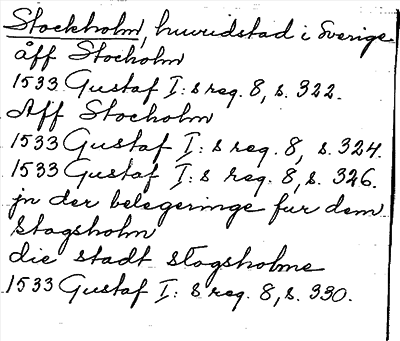 Stockholm, huvudstad i Sverige
åff Stocholm
1533 Gustaf I:s reg. 8, s. 322.
Aff Stocholm
1533 Gustaf I:s reg. 8, s. 324.
1533 Gustaf I:s reg. 8, s. 326.
jn der belegeringe fur dem
stogsholm
die stadt stogsholme
1533 Gustaf I: s reg. 8, s. 330.